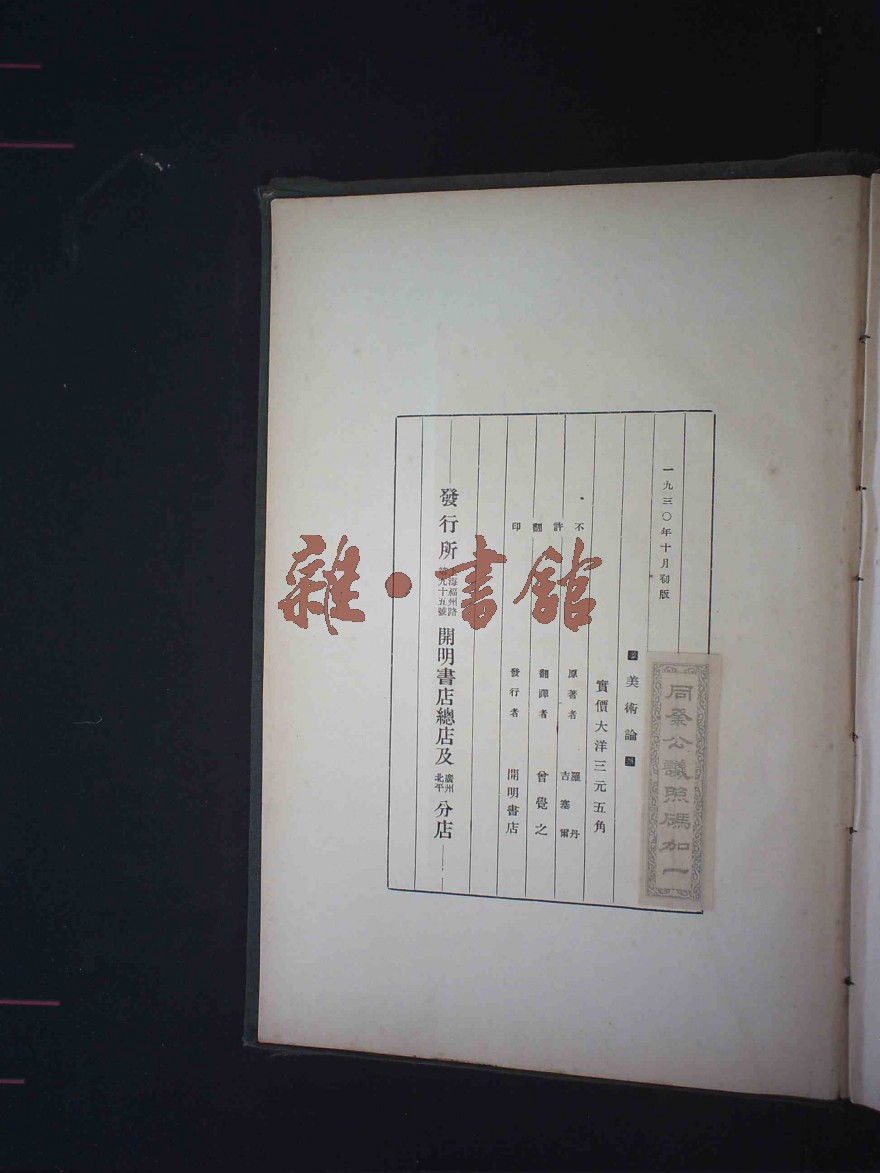 一九三〇年十月初版
美術論
實價大洋三元五角
原著者 羅丹
吉塞爾
翻譯者 曾覺之
發行者 開明書店
不許翻印
發行所
海福州路
九十五號
開明書店總店及
廣州
北平
分店
同業公議照碼加一
雜·書館